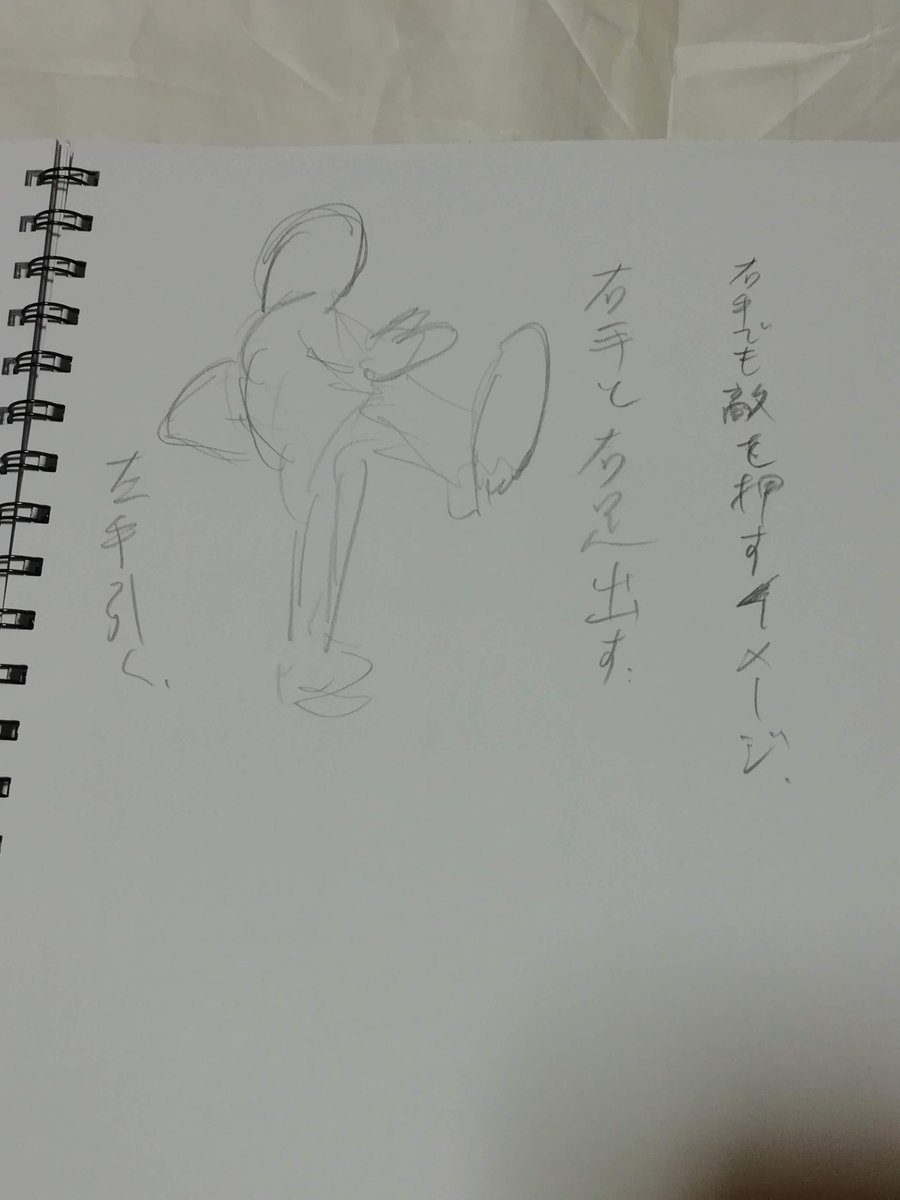 右手でも敵を押すイメージ.
右手と右足出す.
左手引く.